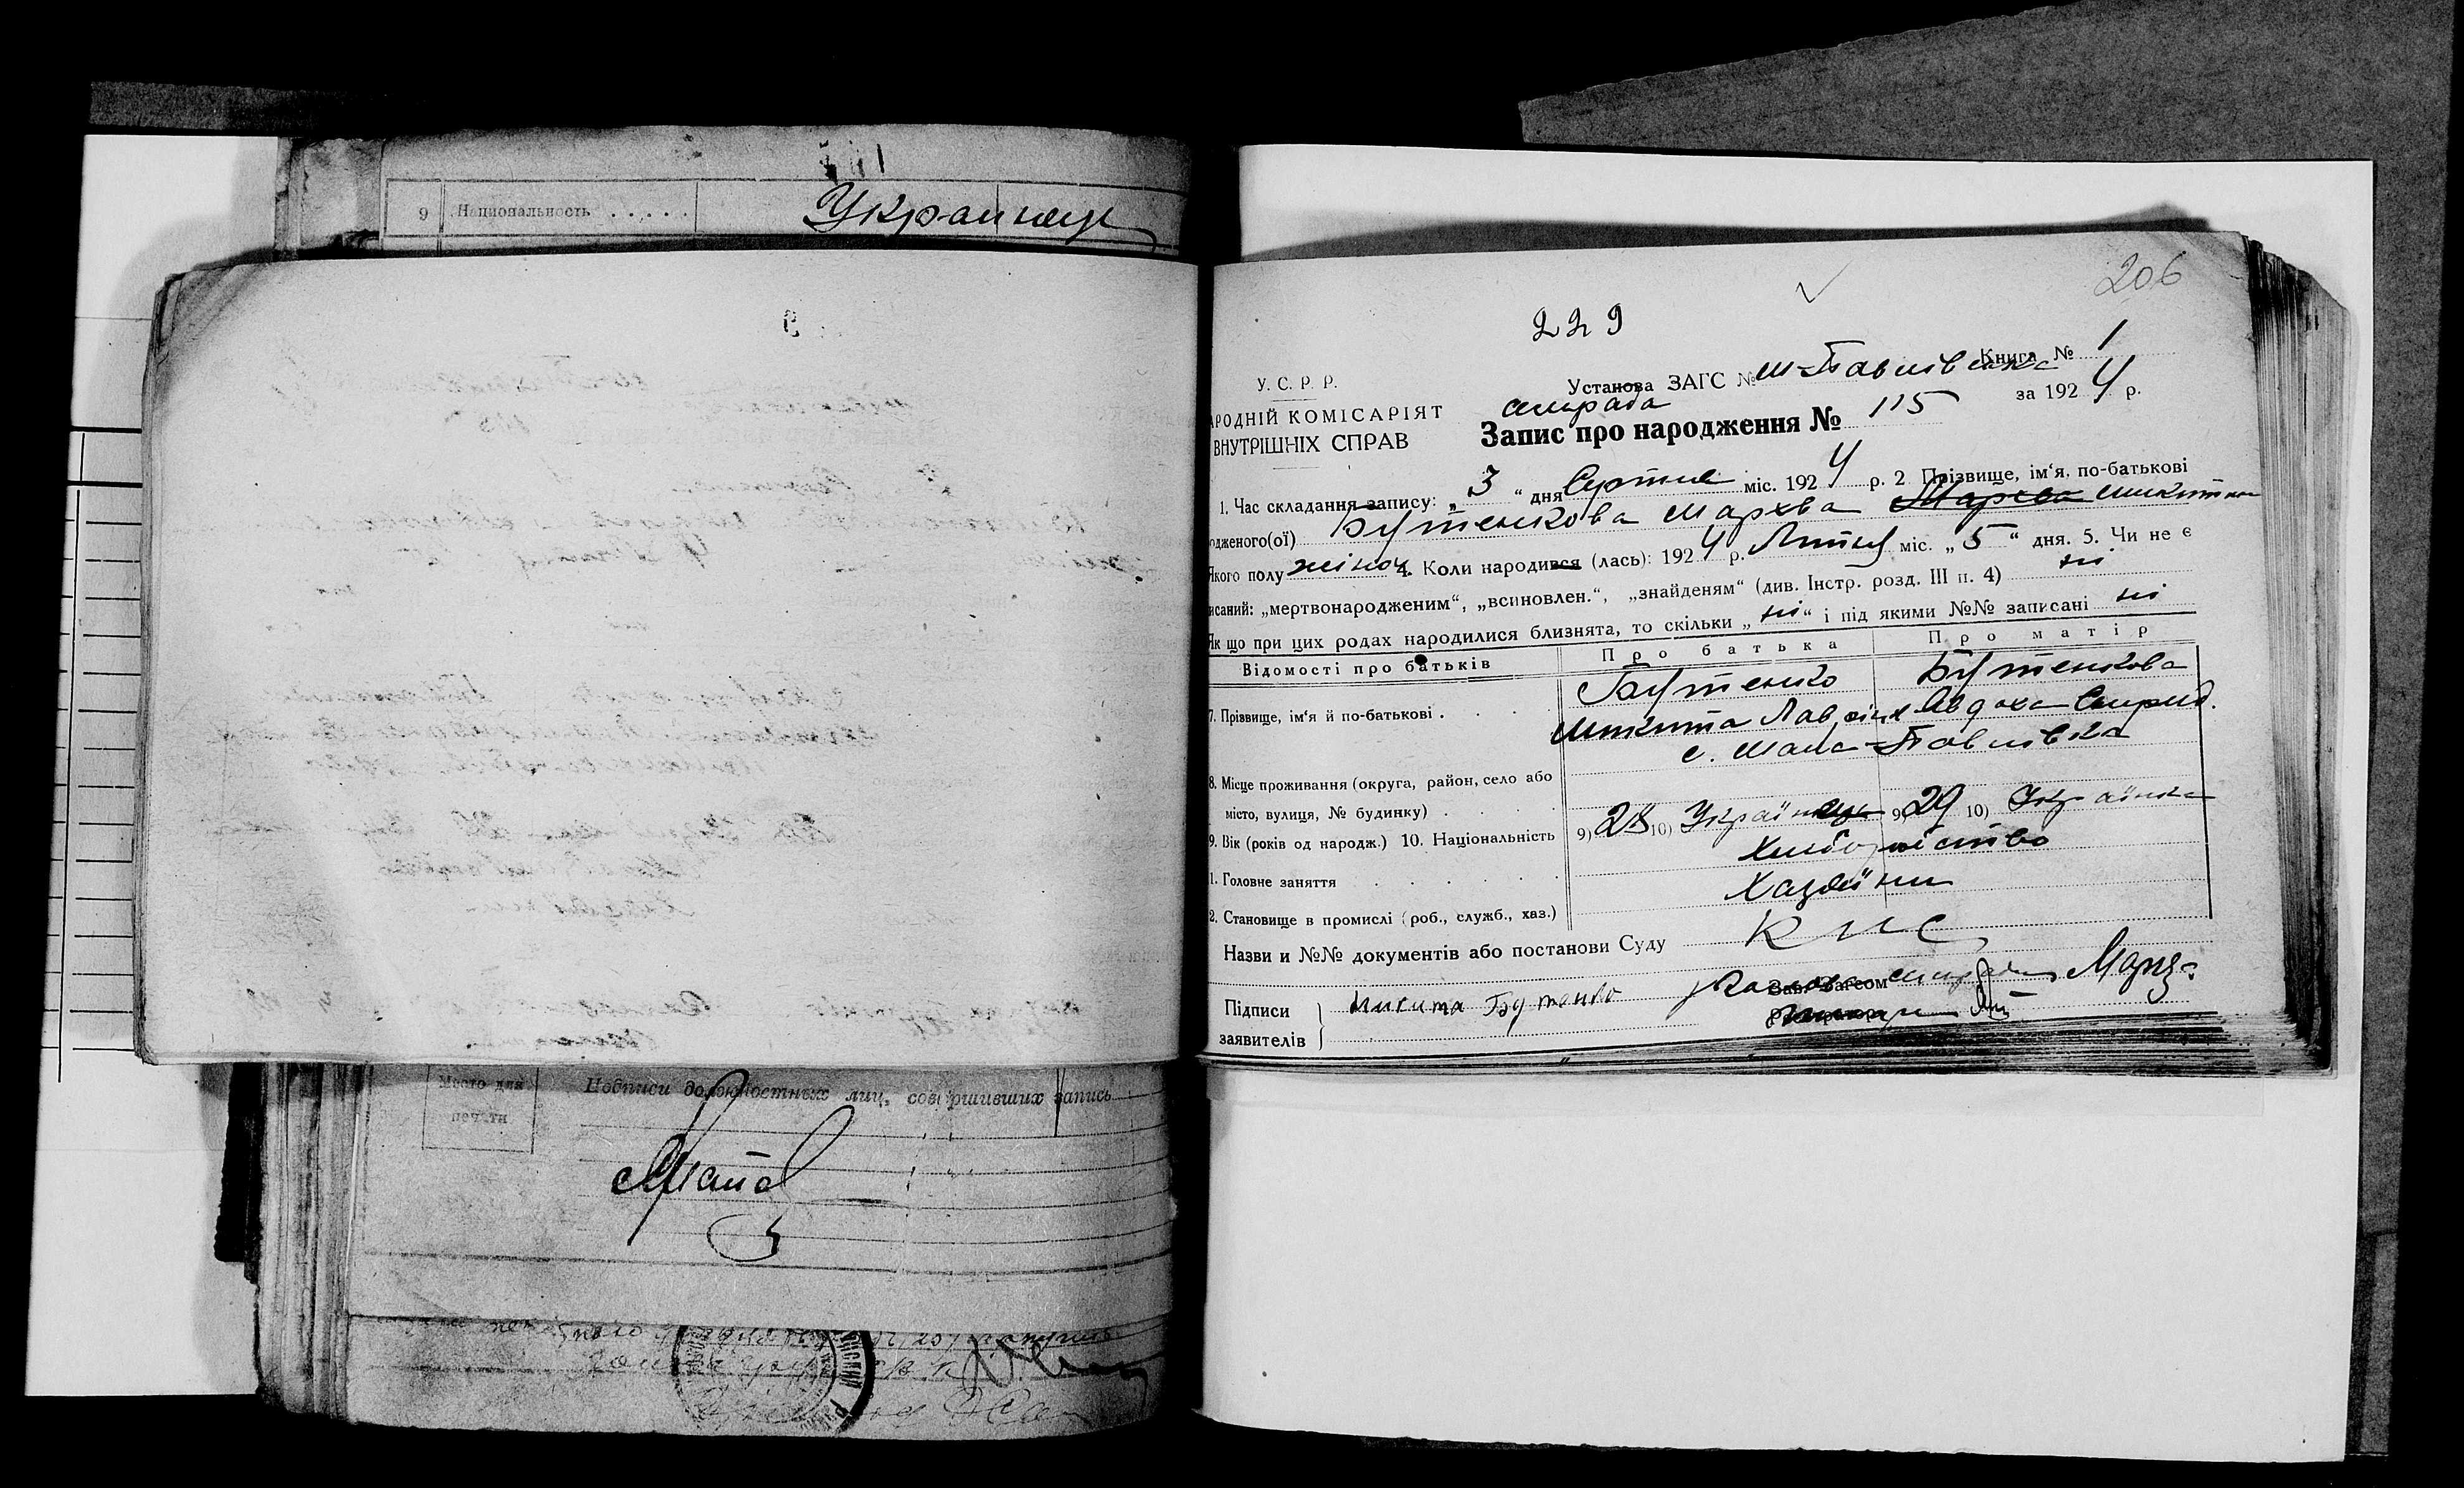 9 Национальность . . . . . Украинец
206
229
У. С. Р. Р.
Установа ЗАГС № М-Павлівська Книга № 1
сільрада
за 1924 р.
АРОДНІЙ КОМІСАРІЯТ
ВНУТРІШНІХ СПРАВ
Запис про народження № 115
1. Час складання запису: „3“ дня Серпня міс. 1924 р. 2 Прізвище, ім‘я, по-батькові
одженого(ої) Бутенкова Мархва
Якого полу жіноч. 4. Коли народився (лась): 1924 р. Липня міс. „5“ дня. 5. Чи не є
исаний: „мертвонародженим“, „всиновлен.“, „знайденям“ (див. Інстр. розд. III п. 4) ні
Як що при цих родах народилися близнята, то скільки „ні“ і під якими №№ записані ні
Відомості про батьків
Про батька
Про матір
7. Прізвище, ім‘я й по-батькові . . . .
Бутенко
Бутенкова
Микита
Авдоха Спирид.
с. Мала-Павлівка
8. Місце проживання (округа, район, село або
місто, вулиця, № будинку) . . .
9. Вік (років од народж.) 10. Національність
9) 28 10) Українець 9) 29 10) Українка
1. Головне заняття . . . . .
Хліборобство
2. Становище в промислі (роб., служб., хаз.)
Хазяїни
Назви и №№ документів або постанови Суду
Підписи
заявителів
Микита Бутенко
Зав. Загсом
Место для
печати
Подписи должностных лиц, совершивших запись